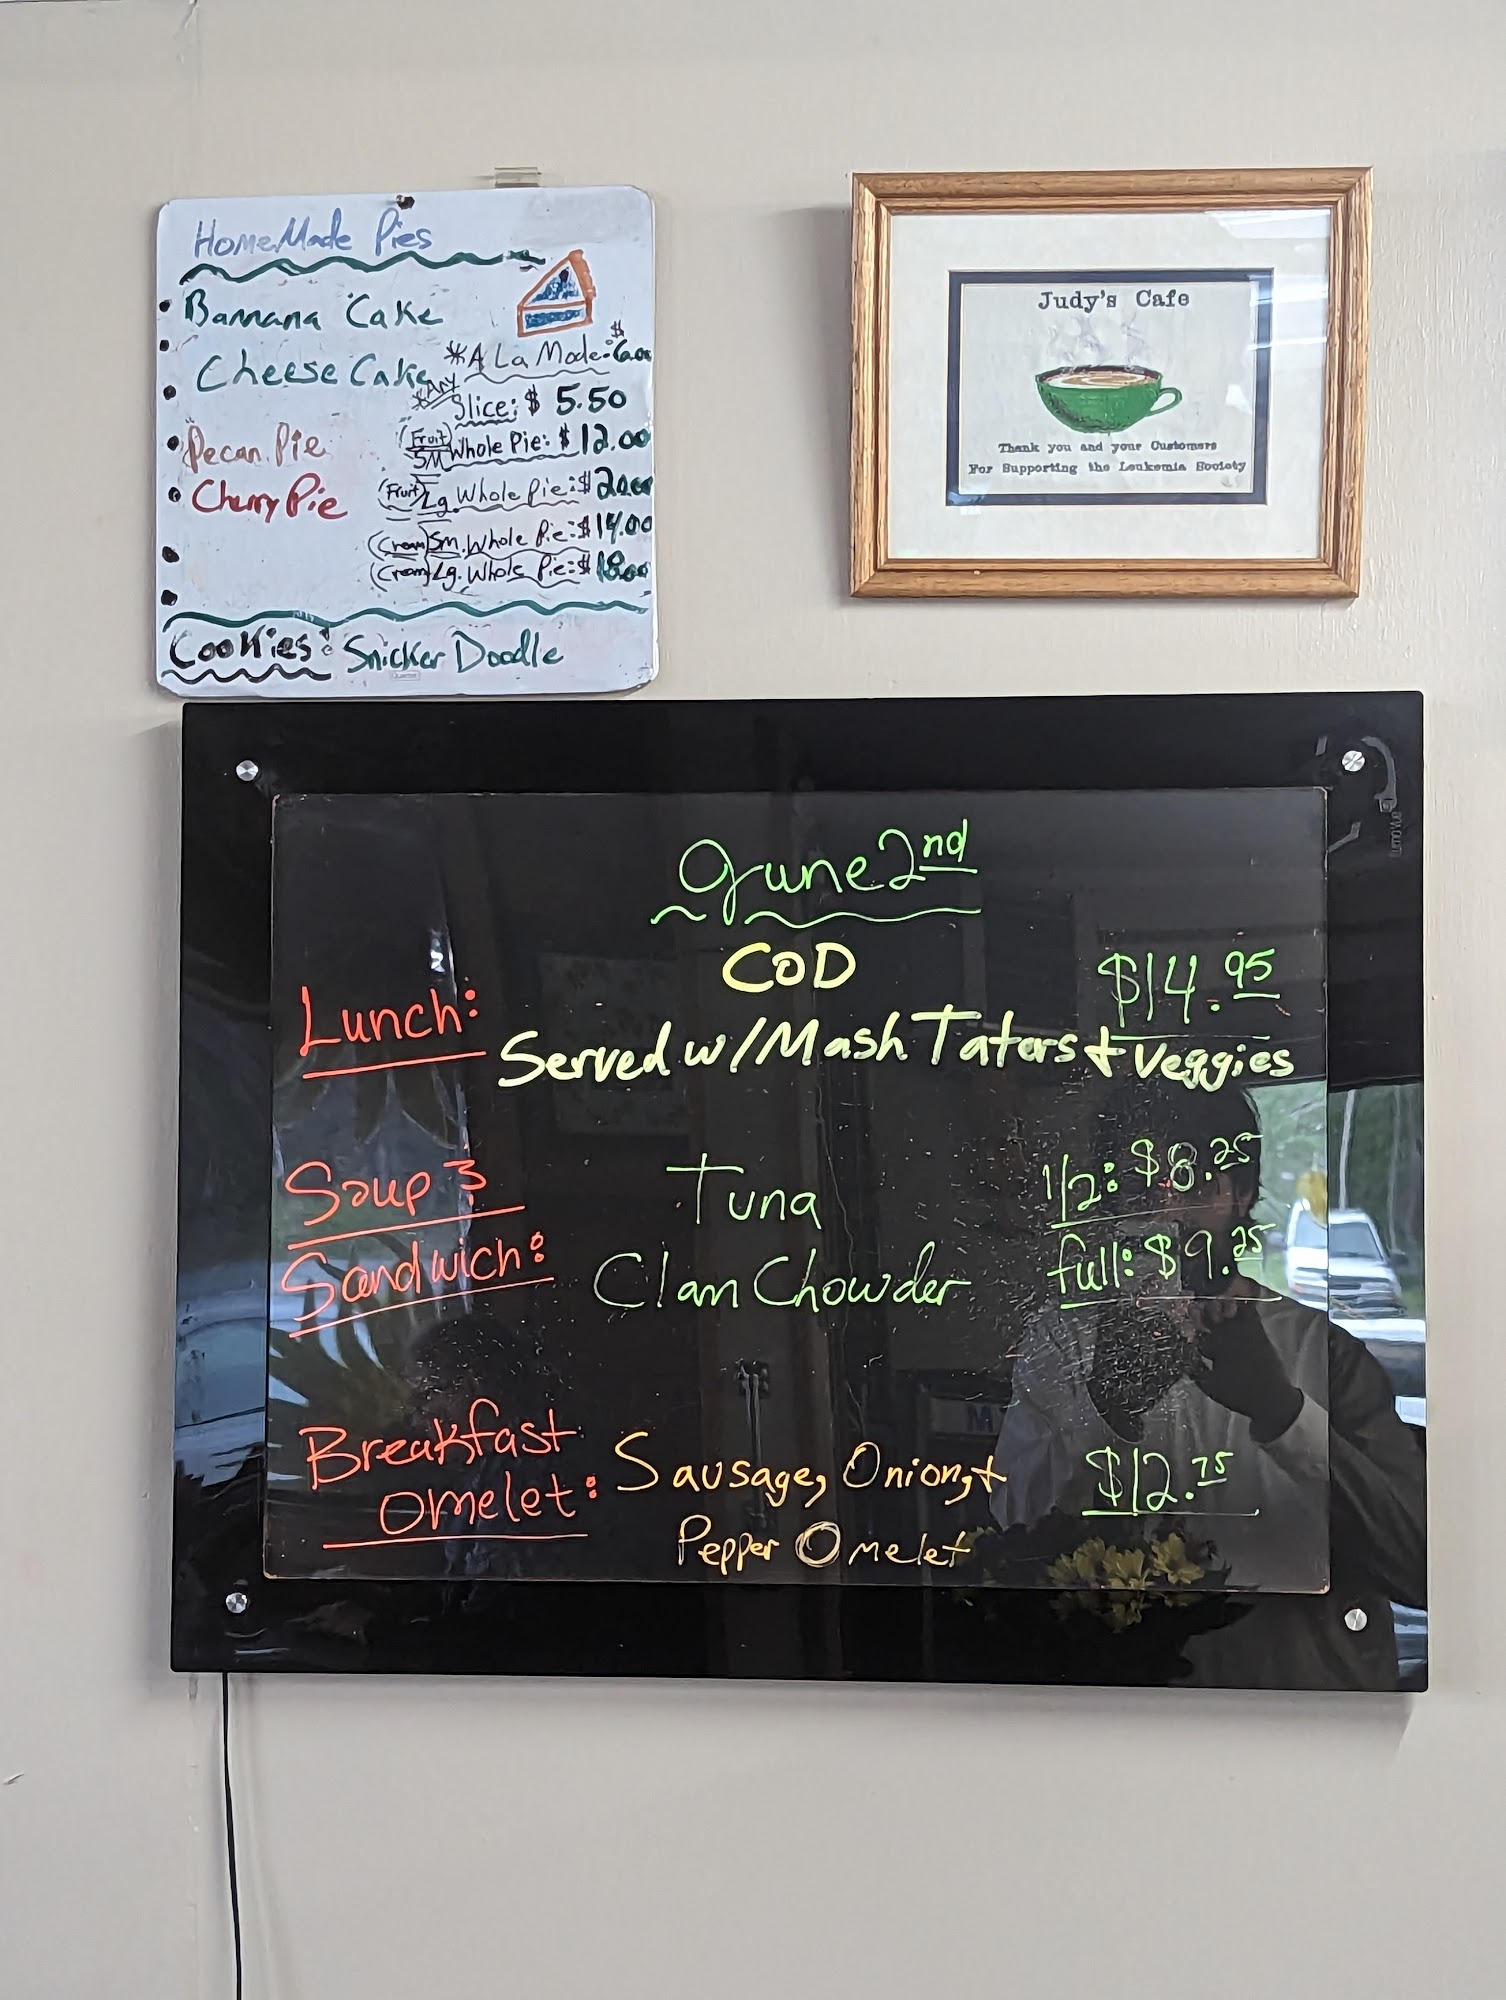 HomeMade Pies
Bannana Cake
Cheese Cake
Pecan Pie
Cherry Pie
*A La Mode: $6.00
*Any Slice: $5.50
(Fruit) SM Whole Pie: $12.00
(Fruit) Lg. Whole Pie: $20.00
(Cream) SM. Whole Pie: $14.00
(Cream) Lg. Whole Pie: $18.00
Cookies: Snicker Doodle
Judy's Cafe
Thank you and your Customers
For Supporting the Leukemia Society
June 2nd
Lunch: COD $14.95
Served w/Mash Taters + Veggies
Soup & Tuna 1/2: $8.25
Sandwich: Clam Chowder full: $9.25
Breakfast Sausage, Onion, +
Omelet: Pepper Omelet $12.75